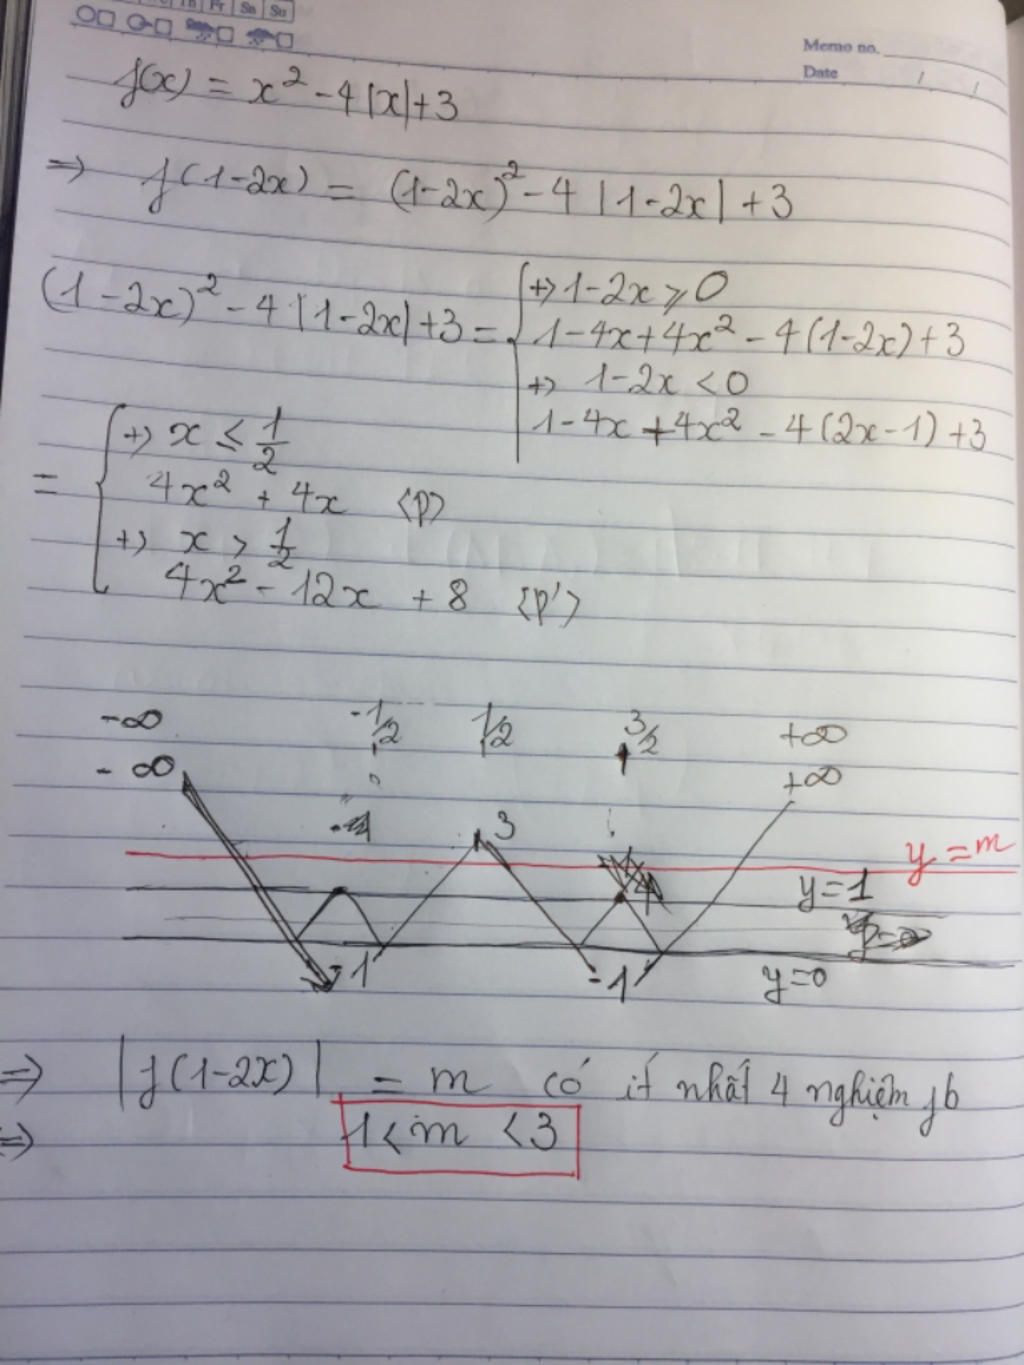 Fr Sa Su
Memo no.
Date / /
f(x) = x² - 4|x| + 3
=> f(1-2x) = (1-2x)² - 4|1-2x| + 3
(1-2x)² - 4|1-2x| + 3 =
+) 1-2x ≥ 0
1-4x+4x² - 4(1-2x)+3
+) 1-2x < 0
1-4x+4x² - 4(2x-1)+3
=
+) x ≤ 1/2
4x² + 4x <P>
+) x > 1/2
4x² - 12x + 8 <P'>
-∞ -1/2 1/2 3/2 +∞
-∞ +∞
3
y = m
y = 1
-1 -1 y=0
=> |f(1-2x)| = m có ít nhất 4 nghiệm pb
=> 1 < m < 3